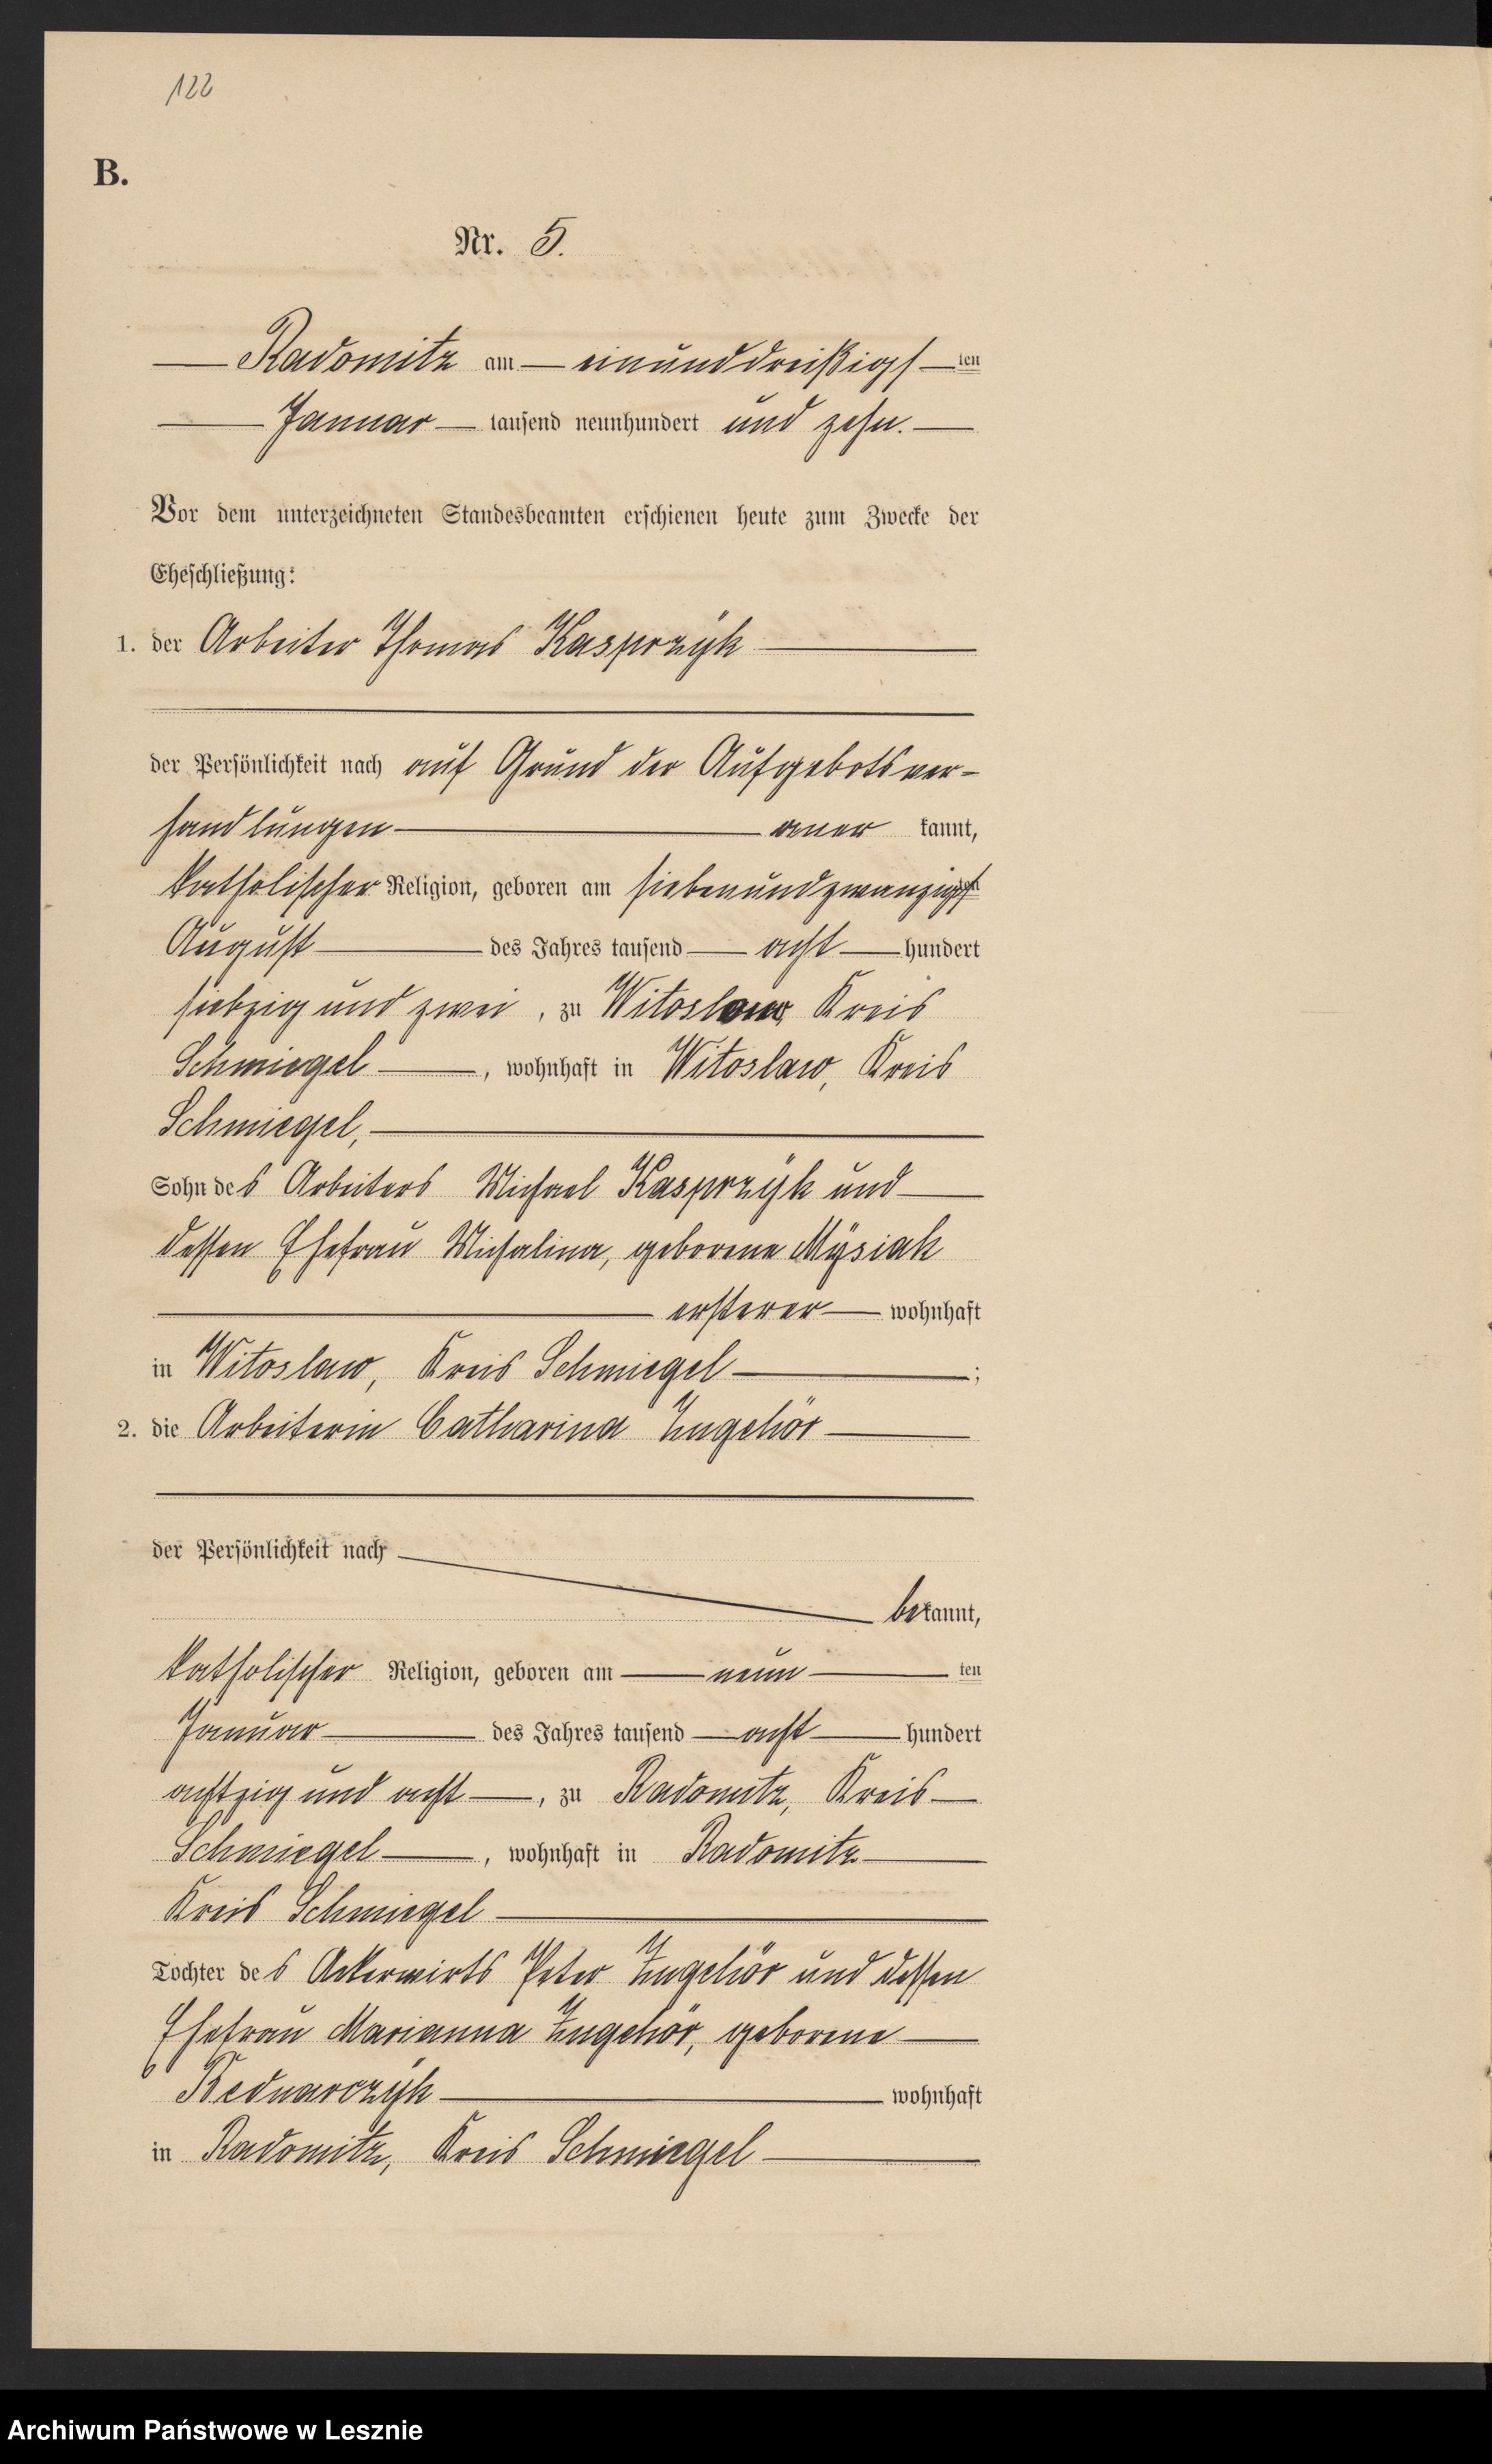 122
B.
Nr. 5.
Radomitz am einunddreißigsten
Januar tausend neunhundert und zehn.
Vor dem unterzeichneten Standesbeamten erschienen heute zum Zwecke der
Eheschließung:
1. der Arbeiter Thomas Kasprzÿk
der Persönlichkeit nach auf Grund der Aufgebotsver-
handlungen aner kannt,
katholischer Religion, geboren am siebenundzwanzigsten
August des Jahres tausend acht hundert
siebzig und zwei, zu Witoslaw, Kreis
Schmiegel, wohnhaft in Witoslaw, Kreis
Schmiegel,
Sohn des Arbeiters Michael Kasprzÿk und
dessen Ehefrau Michalina, geborene Mÿsiak
ersterer wohnhaft
in Witoslaw, Kreis Schmiegel;
2. die Arbeiterin Catharina Zugehör
der Persönlichkeit nach
bekannt,
katholischer Religion, geboren am neunten
Januar des Jahres tausend acht hundert
achtzig und acht, zu Radomitz, Kreis
Schmiegel, wohnhaft in Radomitz
Kreis Schmiegel
Tochter des Ackerwirts Peter Zugehör und dessen
Ehefrau Marianna Zugehör, geborene
Bednarczÿk wohnhaft
in Radomitz, Kreis Schmiegel
Archiwum Państwowe w Lesznie